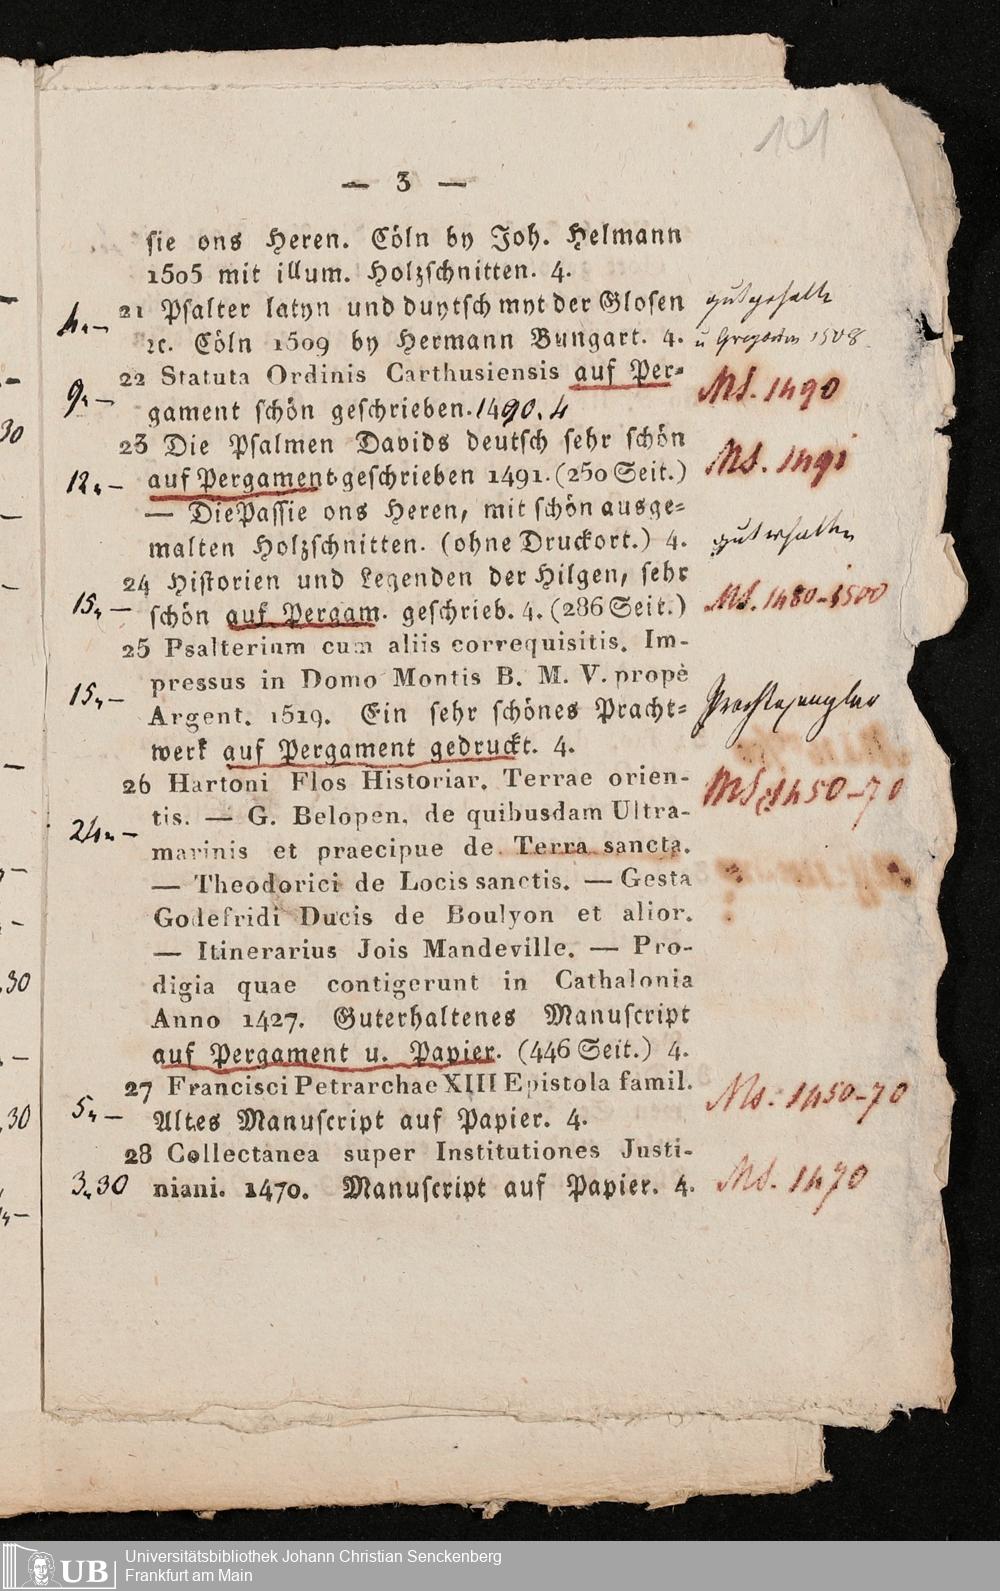 101
— 3 —
sie ons Heren. Cöln by Joh. Helmann
1505 mit illum. Holzschnitten. 4.
4.— 21 Psalter latyn und duytsch myt der Glosen
ꝛc. Cöln 1509 by Hermann Bungart. 4. u 1508
9.— 22 Statuta Ordinis Carthusiensis auf Per= MS. 1490
gament schön geschrieben. 1490. 4
23 Die Psalmen Davids deutsch sehr schön MS. 1491
12.— auf Pergament geschrieben 1491. (250 Seit.)
— Die Passie ons Heren, mit schön ausge=
malten Holzschnitten. (ohne Druckort.) 4. gut erhalten
24 Historien und Legenden der Hilgen, sehr
15.— schön auf Pergam. geschrieb. 4. (286 Seit.) MS. 1480-1500
25 Psalterium cum aliis correquisitis. Im-
15.— pressus in Domo Montis B. M. V. propè
Argent. 1519. Ein sehr schönes Pracht= Prachtexemplar
werk auf Pergament gedruckt. 4.
26 Hartoni Flos Historiar. Terrae orien- MS. 1450-70
24.— tis. — G. Belopen, de quibusdam Ultra-
marinis et praecipue de Terra sancta.
— Theodorici de Locis sanctis. — Gesta
Godefridi Ducis de Boulyon et alior.
— Itinerarius Jois Mandeville. — Pro-
digia quae contigerunt in Cathalonia
Anno 1427. Guterhaltenes Manuscript
auf Pergament u. Papier. (446 Seit.) 4.
27 Francisci Petrarchae XIII Epistola famil. Ms. 1450-70
5.— Altes Manuscript auf Papier. 4.
28 Collectanea super Institutiones Justi-
3.30 niani. 1470. Manuscript auf Papier. 4. MS. 1470
30
30
30
UB
Universitätsbibliothek Johann Christian Senckenberg
Frankfurt am Main